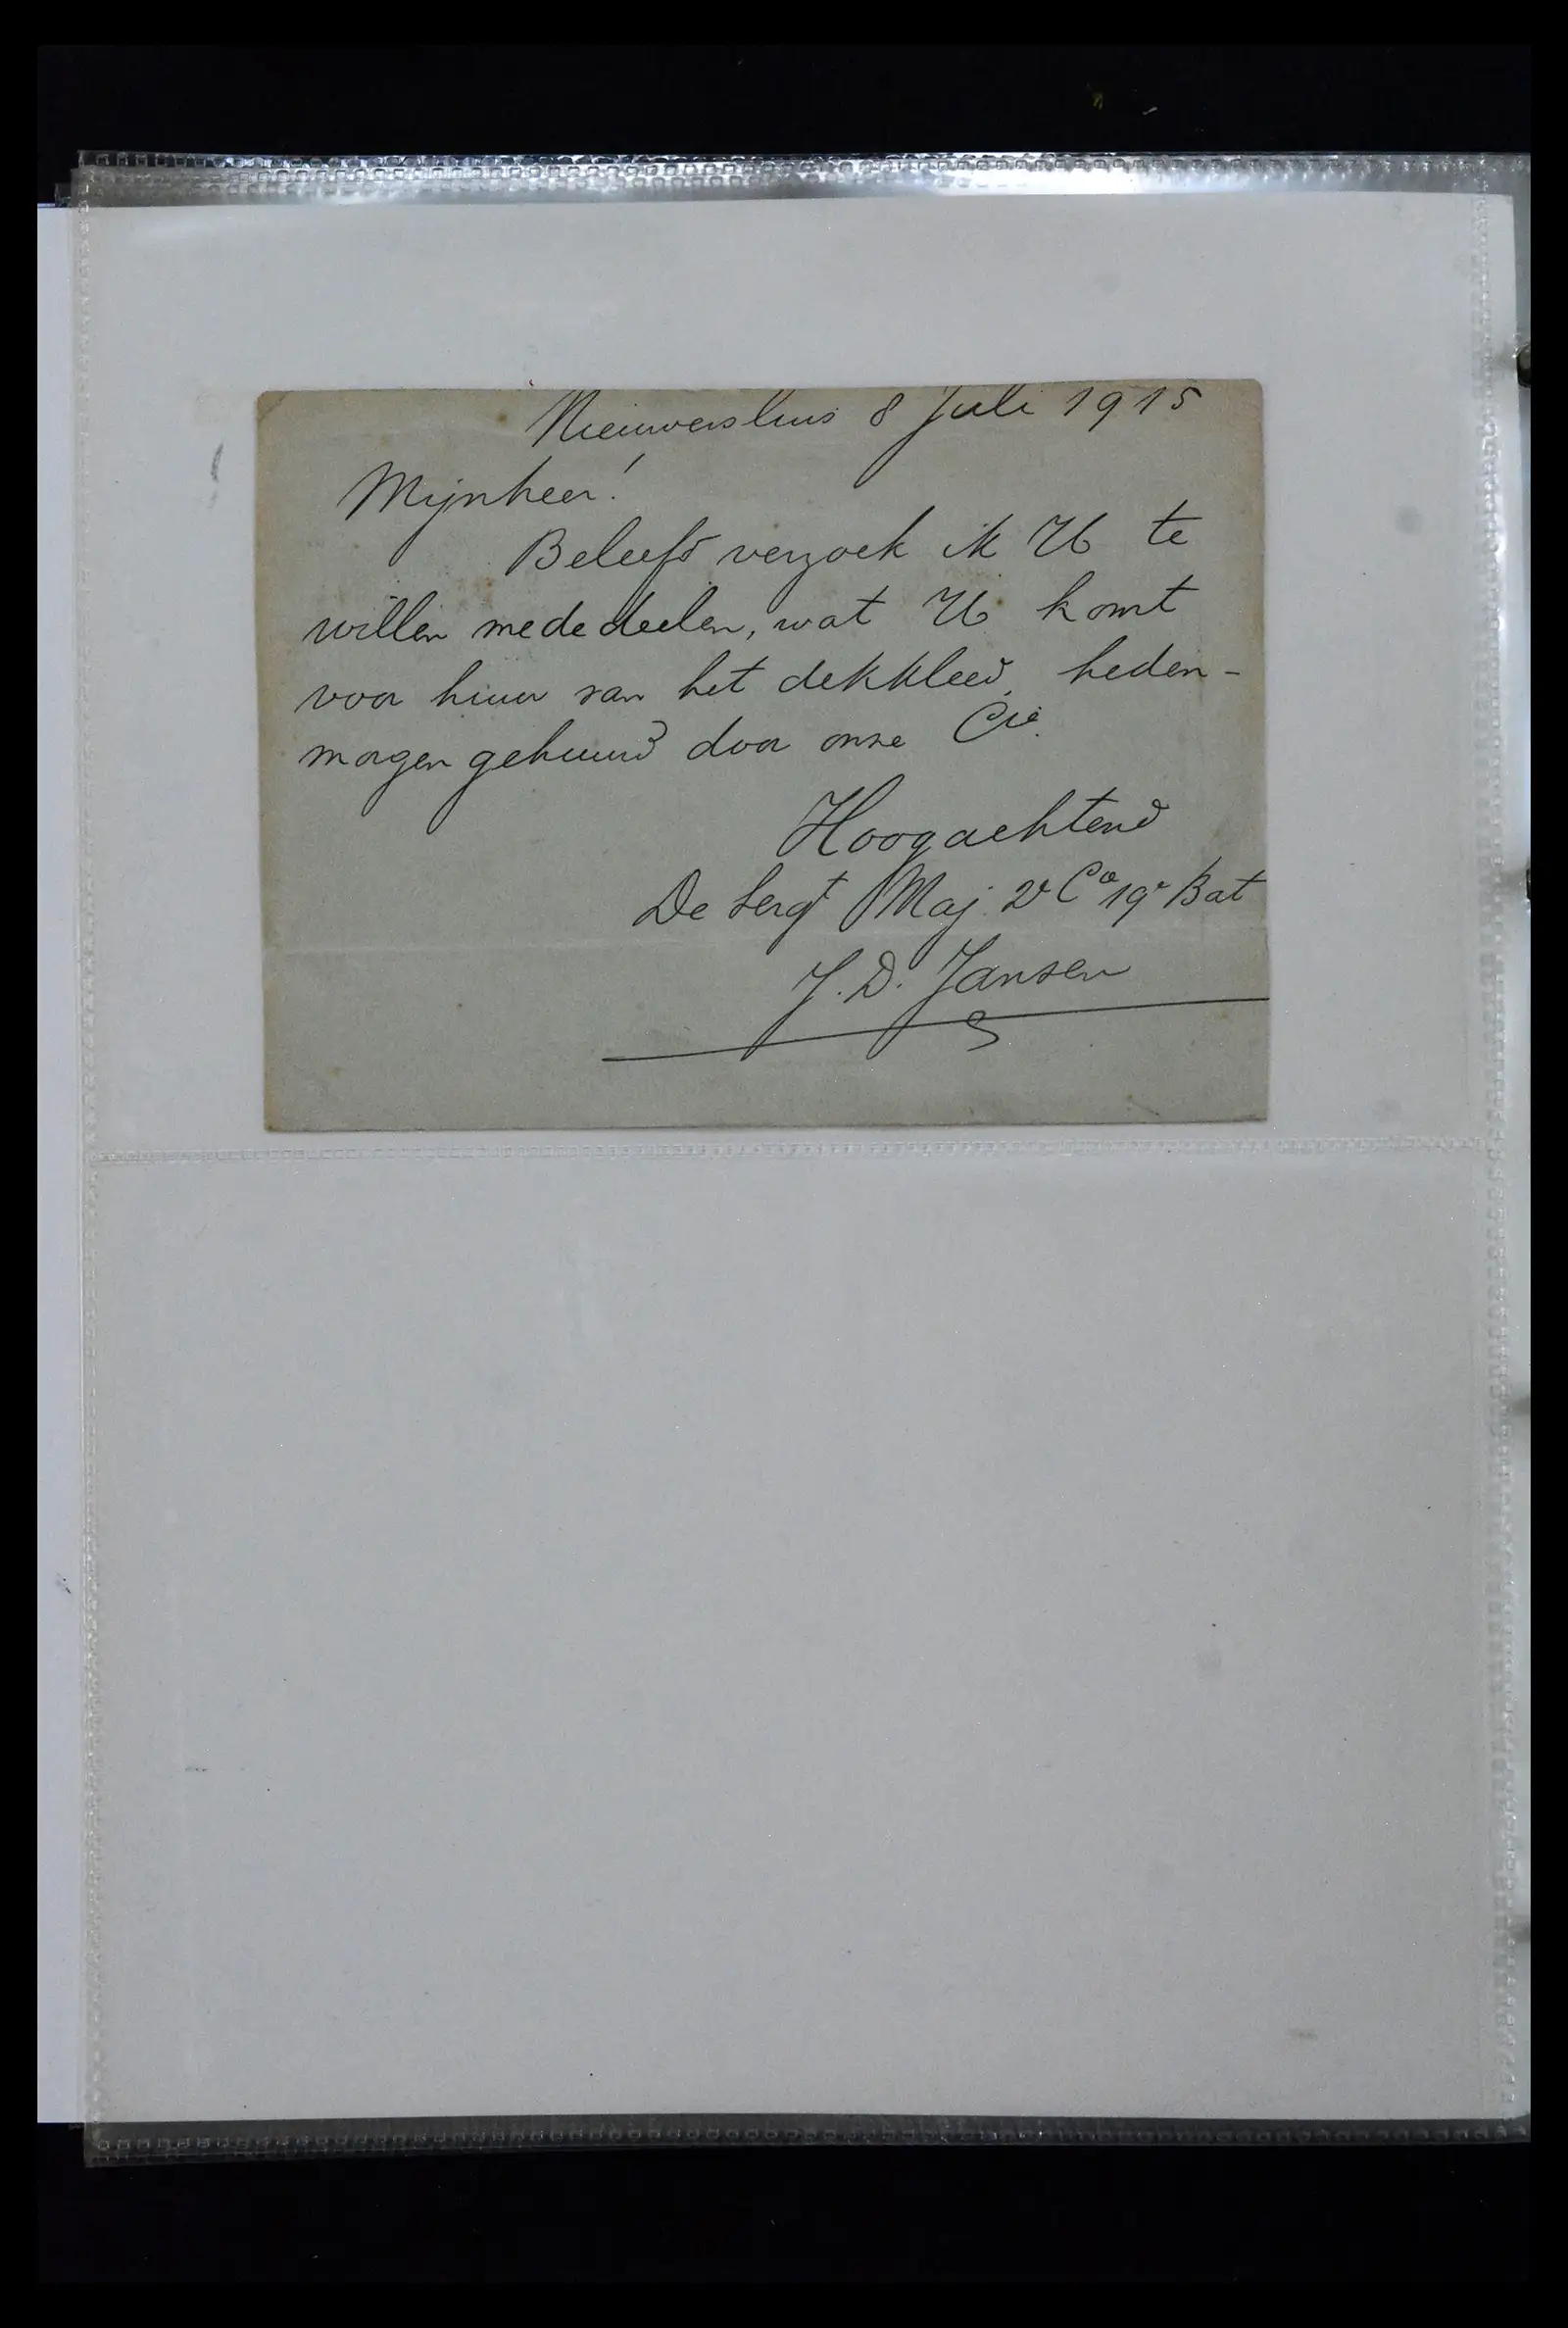 Nieuwersluis 8 Juli 1915
Mijnheer!
Beleefd verzoek ik U te
willen mededeelen, wat U komt
voor huur van het dekkleed, heden-
morgen gehuurd door onze Cie.
Hoogachtend
De Sergt Maj. 2e Cie 19e Bat
J. D. Jansen